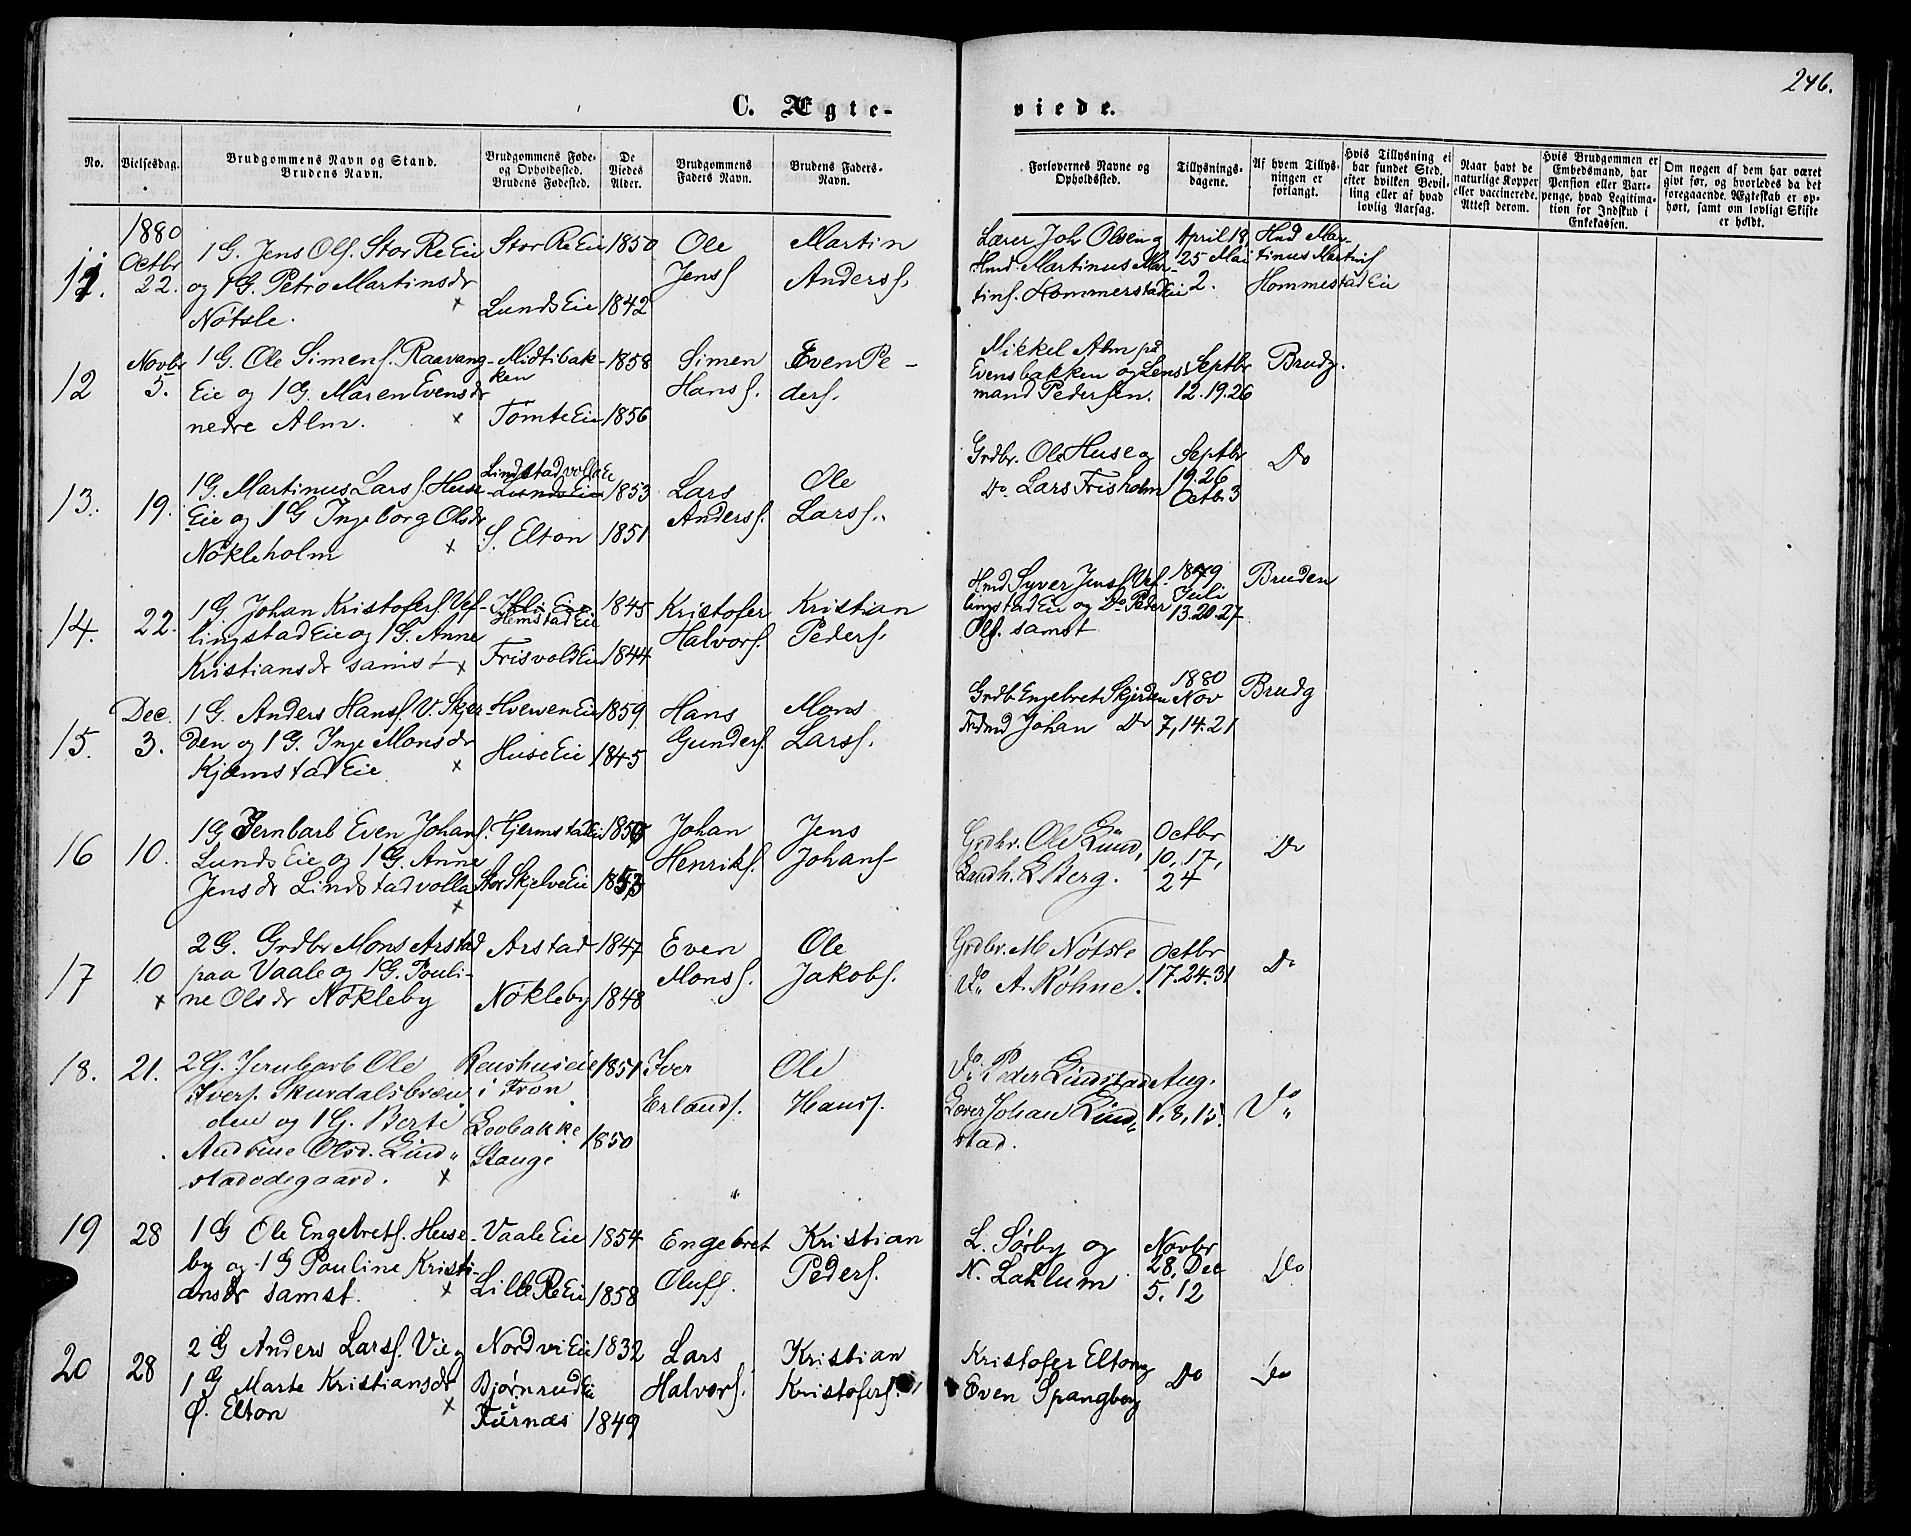 246.
C. Ægte-
viede.
No.
Vielsesdag.
Brudgommens Navn og Stand.
Brudens Navn.
Brudgommens Føde-
og Opholdssted.
Brudens Fødested.
De
Viedes
Alder.
Brudgommens
Faders Navn.
Brudens Faders-
Navn.
Forlovernes Navne og
Opholdssted.
Tillysnings-
dagene.
Af hvem Tillys-
ningen er
forlangt.
Hvis Tillysning ei
har fundet Sted,
efter hvilken Bevil-
ling eller af hvad
lovlig Aarsag.
Naar havt de
naturlige Kopper
eller vaccinerede.
Attest derom.
Hvis Brudgommen er
Embedsmand, har
Pension eller Vart-
penge, hvad Legitima-
tion for Indskud i
Enkekassen.
Om nogen af dem har været
givt før, og hvorledes da det
foregaaende Ægteskab er op-
hørt, samt om lovligt Skifte
er holdt.
11.
1880
Octbr
22.
1 G. Jens Ols. Stor Re Eie
og 1 G. Petro Martinsdr
Nötsle.
Stor Re Eie
Lunds Eie
1850
1842
Ole
Jenss.
Martin
Anderss.
Lærer Joh Olsen og
Hmd. Martinus Mar-
tins. Hommerstad Eie
April 18
25 Mai
2.
Hmd Mar-
tinus Martins
Hommestad Eie
12
Novbr
5.
1 G. Ole Simens. Raavang-
Eie og 1 G. Maren Evensdr
nedre Alm.
Midtibak-
ken
Tomte Eie
1858
1856
Simen
Hanss.
Even Pe-
ders.
Mikkel Alm på
Evensbakken og Lens-
mand Pedersen.
Septbr
12.19.26
Brudg.
13.
19.
1 G. Martinus Lars s. Huse
Eie og 1 G Ingeborg Olsdr
Nökleholm
Lindstadvolla Eie
Lunds Eie
S. Elton
1853
1851
Lars
Anderss.
Ole
Larss.
Grdbr. Ole Huse og
Do Lars Frisholm
Septbr
19.26
Octbr 3
Do
14.
22.
1 G. Johan Kristofers. Vef-
lingstad Eie og 1 G. Anne
Kristiansdr samst
Hemstad Eie
Frisvold Eie
1845
1844
Kristofer
Halvors.
Kristian
Peders.
Hmd Syver Jenss. Vef-
lingstad Eie og Do Peder
Ols. samst
1879
Juli
13.20.27.
Bruden
15.
Dec.
3.
1 G. Anders Hans s. V. Skjer-
den og 1 G. Inge Monsdr
Kjæmstad Eie
Hverven Eie
Huse Eie
1859
1845
Hans
Gunders.
Mons
Larss.
Grdb. Engebret Skjerden
Johan Do
1880
Nov
7, 14. 21
Brudg
16
10.
1 G Jernbarb Even Johans.
Lunds Eie og 1 G. Anne
Jensdr Lindstadvolla
Hjermstad Eie
Stor Skjelve Eie
Johan
Henriks.
Jens
Johans-
Grdbr. Ole Lund,
Landh. L. Berg.
Octbr
10, 17,
24
Do
17
10
2 G. Grdbr Mons Arstad
paa Vaale og 1 G. Pouli-
ne Olsdr Nökleby
Arstad
Nökleby
1847
1848
Even
Monss.
Ole
Jakobs.
Grdbr. M Nötsle
Do A. Röhne.
Octbr
17.24.31
Do
18.
21.
2 G. Jernbarb Ole
Ivers. Skurdalsbraaten
den og 1 G. Berte
Andrine Olsd. Lind-
stadødegaard.
i Fron
Lovbakke
Stange
1851
1850
Iver
Erlands.
Ole
Hanss.
Do Peder Lindstad
Lærer Johan Lind-
stad.
Aug.
1, 8, 15.
Do
19
28
1 G Ole Engebrets. Huse-
by og 1 G Pauline Kristi-
ansdr samst.
Vaale Eie
Lille Re Eie
1854
1858
Engebret
Olufs.
Kristian
Peders.
L. Sørby og
N. Laklum
Novbr
28, Dec
5. 12
Do
20
28
2 G Anders Larss. Vie og
1 G Marte Kristiansdr
Ø. Elton
Nordvi Eie
Bjørnrud Eie
Furnæs
1832
1849
Lars
Halvors.
Kristian
Kristofers.
Kristofer Elton og
Even Spangberg
Do
Do